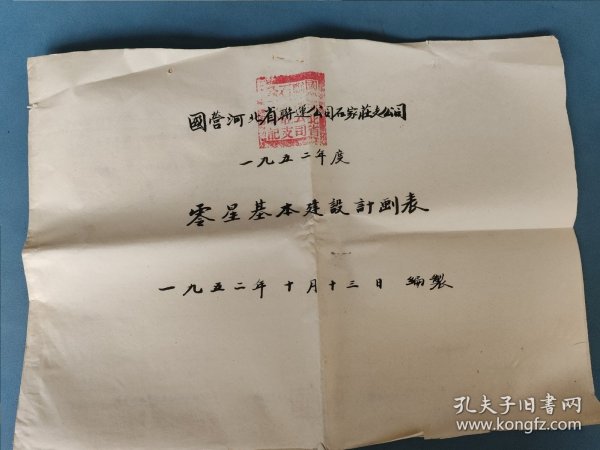 國营河北省聯運公司石家莊支公司
一九五二年度
零星基本建設計劃表
一九五二年十月十三日 编製
孔夫子旧书网
www.kongfz.com